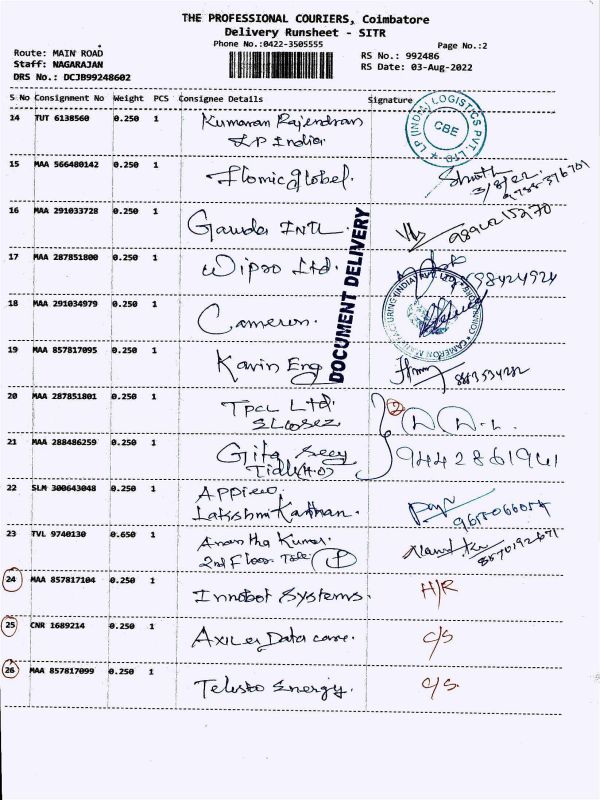 THE PROFESSIONAL COURIERS, Coimbatore
Delivery Runsheet - SITR
Phone No.:0422-3505555
Page No.:2
Route: MAIN ROAD
RS No.: 992486
Staff: NAGARAJAN
RS Date: 03-Aug-2022
DRS No.: DCJB99248602
S No Consignment No Weight PCS Consignee Details Signature
14 TUT 6138560 0.250 1 Kumaran Rajendran
LP India
LP (INDIA) LOGISTICS PVT. LTD.
CBE
15 MAA 566480142 0.250 1 Flomic Global.
3/8/22
16 MAA 291033728 0.250 1 Gauda INTL
DOCUMENT DELIVERY
17 MAA 287851800 0.250 1 Wipro Ltd.
18 MAA 291034979 0.250 1 Cameron.
CAMERON MANUFACTURING (INDIA) PVT. LTD.
19 MAA 857817095 0.250 1 Kavin Eng
20 MAA 287851801 0.250 1 TPCL Ltd.
2
21 MAA 288486259 0.250 1 Gita Secy
Tidel (H.O)
9442861941
22 SLM 300643048 0.250 1
Lakshmi Kanthan.
23 TVL 9740130 0.650 1 Anantha Kumar.
2nd Floor
24 MAA 857817104 0.250 1 Innobot Systems. H/R
25 CNR 1689214 0.250 1 Axiles Data care. C/S
26 MAA 857817099 0.250 1 Energy. C/S.